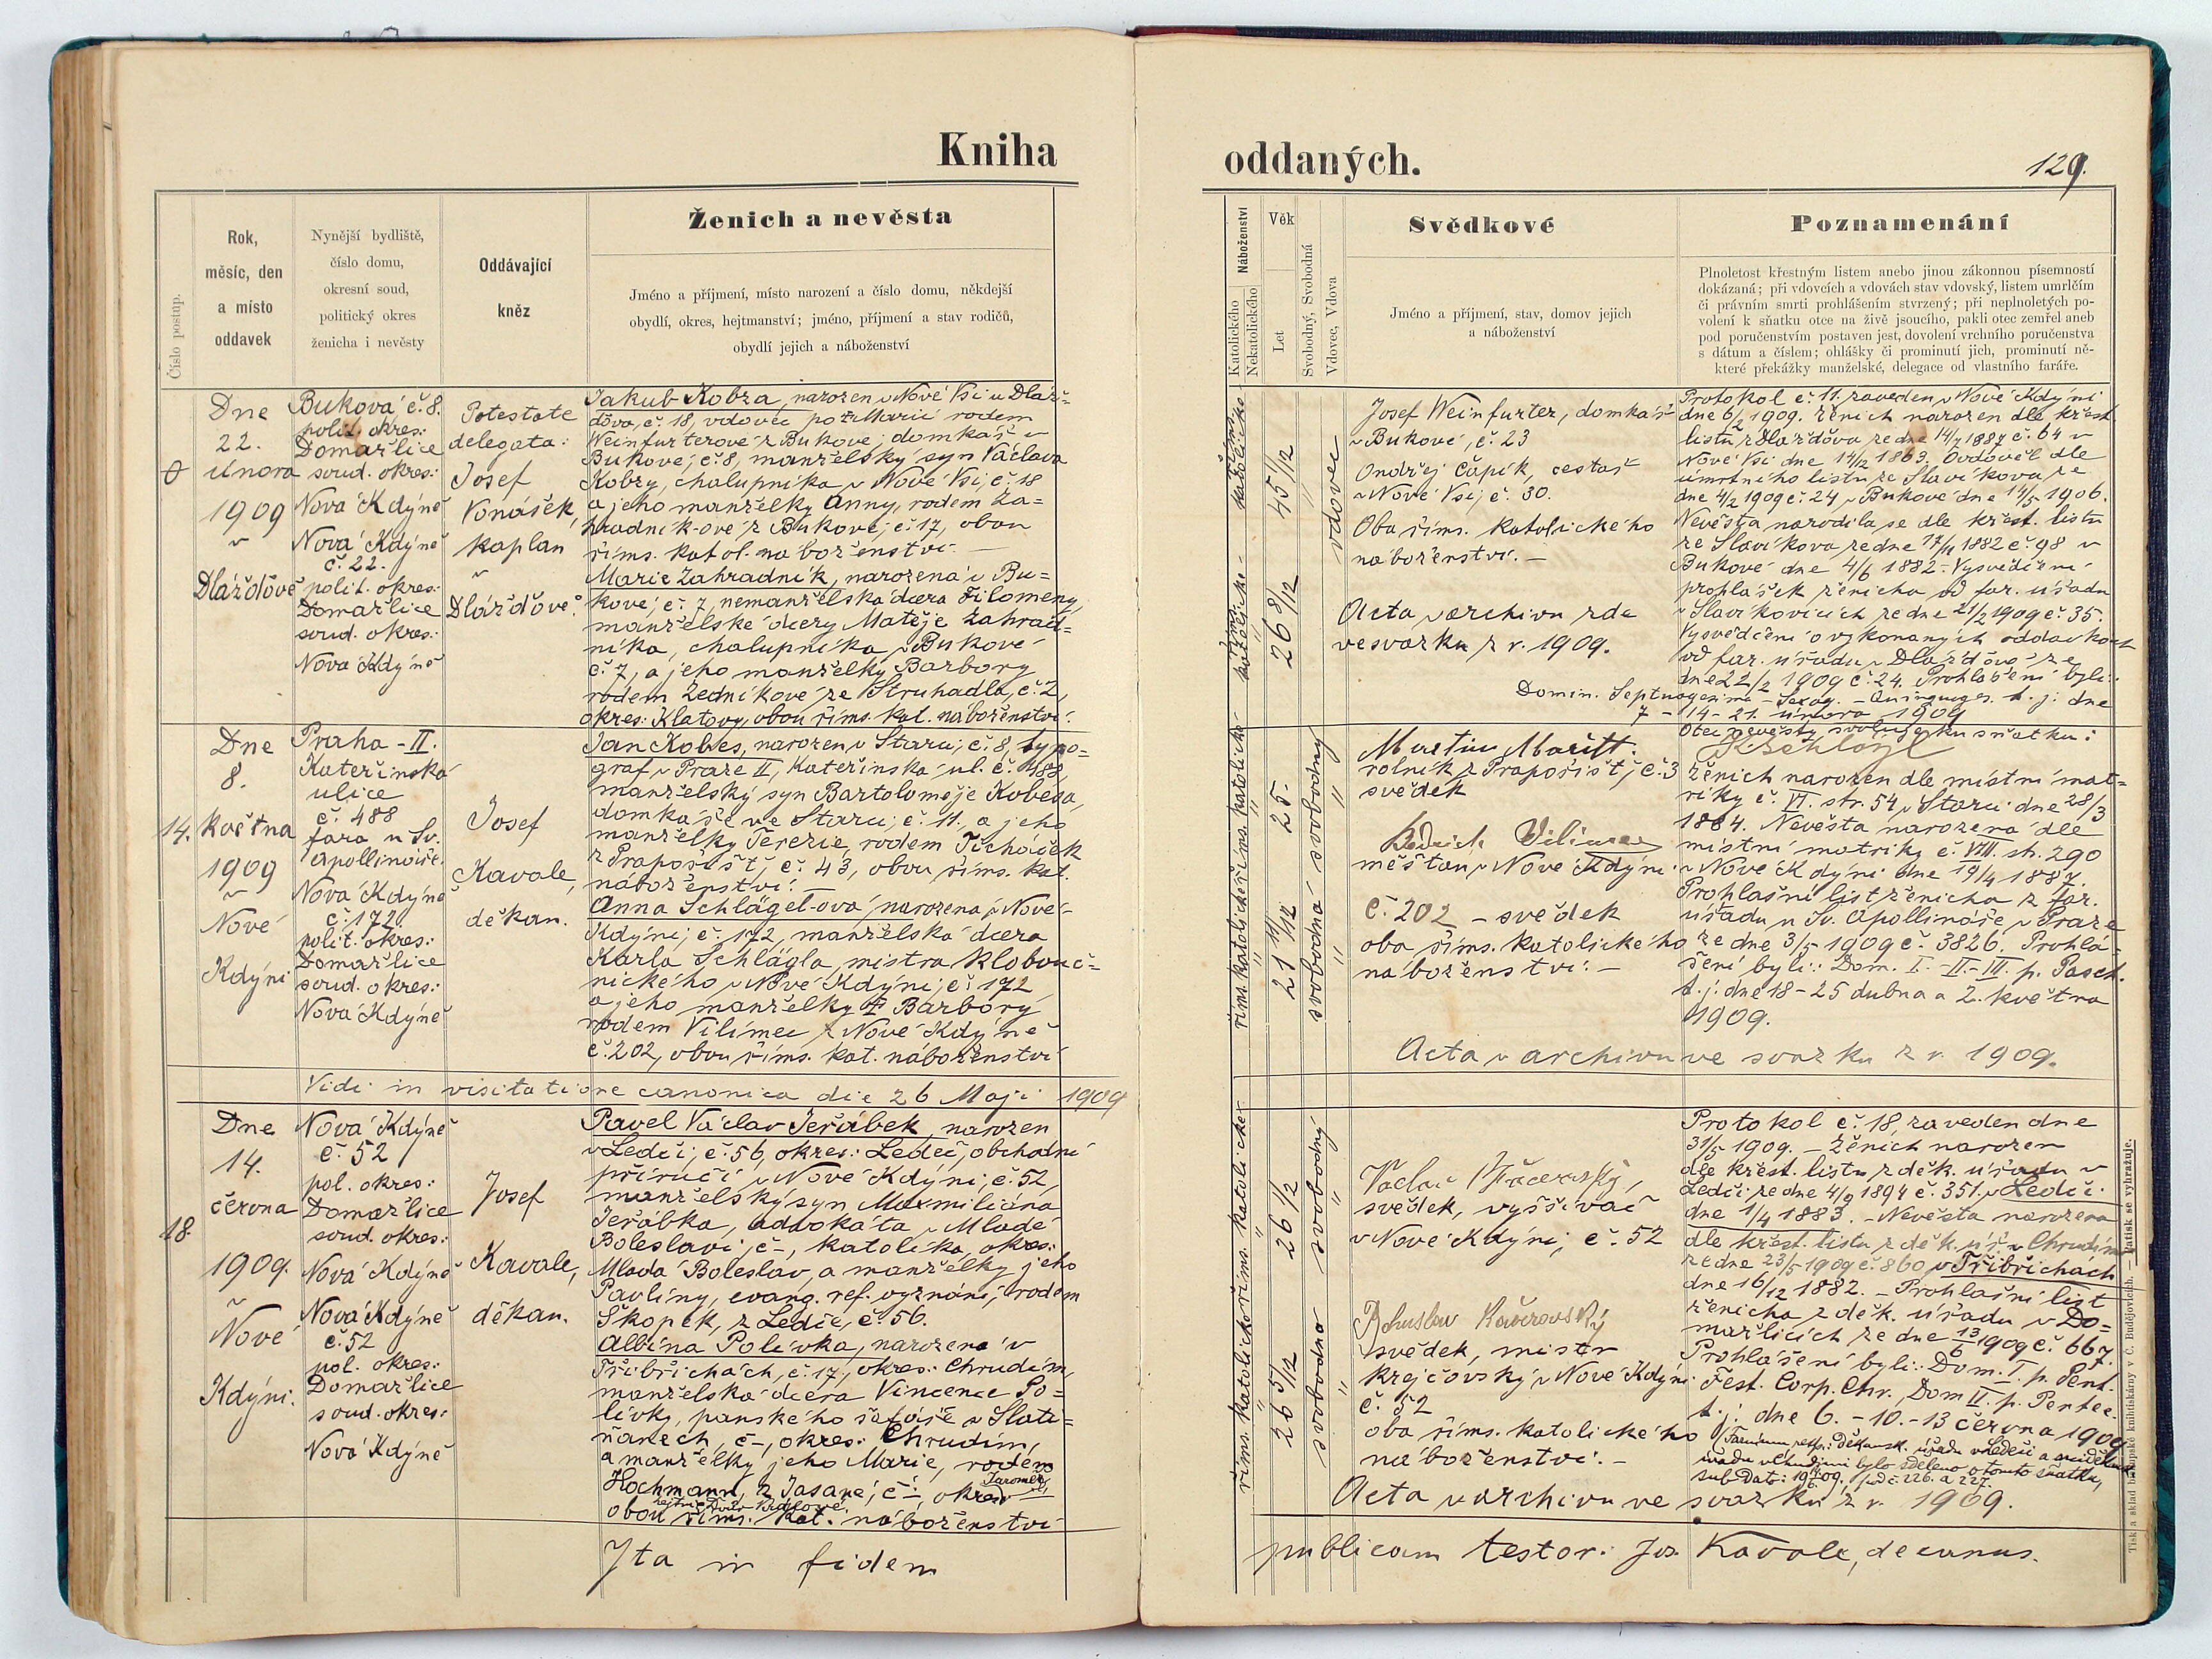 Kniha
oddaných.
129.
Číslo postup.
Rok,
měsíc, den
a místo
oddavek
Nynější bydliště,
číslo domu,
okresní soud,
politický okres
ženicha i nevěsty
Oddávající
kněz
Ženich a nevěsta
Jméno a příjmení, místo narození a číslo domu, někdejší
obydlí, okres, hejtmanství; jméno, příjmení a stav rodičů,
obydlí jejich a náboženství
Náboženství
Katolického
Nekatolického
Věk
Let
Svobodný, Svobodná
Vdovec, Vdova
Svědkové
Jméno a příjmení, stav, domov jejich
a náboženství
Poznamenání
Plnoletost křestným listem anebo jinou zákonnou písemností
dokázaná; při vdovcích a vdovách stav vdovský, listem umrlčím
či právním smrti prohlášením stvrzený; při neplnoletých po-
volení k sňatku otce na živě jsoucího, pakli otec zemřel aneb
pod poručenstvím postaven jest, dovolení vrchního poručenstva
s dátum a číslem; ohlášky či prominutí jich, prominutí ně-
které překážky manželské, delegace od vlastního faráře.
0
Dne
22.
února
1909
v
Dlážďově
Buková, č. 8.
polit. okres:
Domažlice
soud. okres:
Nová Kdýně
Nová Kdýně
č. 22.
polit. okres:
Domažlice
soud. okres:
Nová Kdýně
Potestate
delegata:
Josef
Vonášek,
kaplan
v
Dlážďově.
Jakub Kobza, narozen v Nové Vsi u Dláž-
ďova, č. 18, vdovec po Marii rodem
Weinfurterové z Bukové, domkář v
Bukové, č. 8, manželský syn Václava
Kobzy, chalupníka v Nové Vsi, č. 18
a jeho manželky Anny, rodem Za-
hradník-ové z Bukové, č. 17, obou
řims. katol. náboženství. —
Marie Zahradník, narozená v Bu-
kové, č. 7, nemanželská dcera Filomeny,
manželské dcery Matěje Zahrad-
níka, chalupníka v Bukové
č. 7, a jeho manželky Barbory
rodem Žedníkové ze Struhadla, č. 2,
okres: Klatovy, obou řims. kat. náboženství.
řims. katolické
45 1/12
vdovec
řims. katolické
26 8/12
Josef Weinfurter, domkář
v Bukové, č. 23
Ondřej Čapík, cestář
v Nové Vsi, č. 30.
Oba řims. katolického
náboženství. —
Acta v archivu zde
ve svazku z r. 1909.
Protokol č. 11. zaveden v Nové Kdýni
dne 6/2 1909. Ženich narozen dle křest.
listu z Dlážďova ze dne 14/7 1887 č. 64 v
Nové Vsi dne 14/12 1863. Ovdověl dle
úmrtního listu ze Slavíkova ze
dne 4/2 1909 č. 24, v Bukové dne 14/5 1906.
Nevěsta narodila se dle křest. listu
ze Slavíkova ze dne 17/11 1882 č. 98 v
Bukové dne 4/6 1882. Vysvědčení
prohlášek ženicha od far. úřadu
v Slavíkovicích ze dne 21/2 1909 č. 35.
Vysvědčení o vykonaných oddavkách
od far. úřadu v Dlážďově ze
dne 22/2 1909 č. 24. Prohlášení byli:
Domin. Septuagesima - Sexag. - Quinquages. t. j. dne
7 - 14 - 21. února 1909
14.
Dne
8.
května
1909
v
Nové
Kdýni
Praha - II.
Kateřinská
ulice
č. 488
fara u Sv.
Apollináře.
Nová Kdýně
č. 172.
polit. okres:
Domažlice
soud. okres:
Nová Kdýně
Josef
Kavale,
děkan.
Jan Kobes, narozen v Starci, č. 8, typo-
graf v Praze II, Kateřinská ul. č. 488,
manželský syn Bartoloměje Kobesa,
domkáře ve Starci, č. 11, a jeho
manželky Terezie, rodem Ticháček
z Prapořišť, č. 43, obou řims. kat.
náboženství. —
Anna Schlägel-ová, narozená v Nové
Kdýni, č. 172, manželská dcera
Karla Schlägla, mistra klobouč-
nického v Nové Kdýni, č. 172
a jeho manželky Barbory
rodem Vilímec z Nové Kdýně
č. 202, obou řims. kat. náboženství
řims. katolické
25.
svobodný
řims. katolické
21 1/12
svobodná
Martin Mařitt.
rolník z Prapořišť, č. 3
svědek
Vilímec
měšťan v Nové Kdýni
č. 202 - svědek
oba řims. katolického
náboženství. —
Otec nevěsty svoluje ku sňatku:
K. Schlögl
Ženich narozen dle místní mat-
riky č. VI. str. 54 v Starci dne 28/3
1884. Nevěsta narozena dle
místní matriky č. VIII. str. 290
v Nové Kdýni dne 19/4 1887.
Prohlašní list ženicha z far.
úřadu u Sv. Apollináře v Praze
ze dne 3/5 1909 č. 3826. Prohlá-
šení byli: Dom. I. - II. - III. p. Pasch.
t. j. dne 18 - 25 dubna a 2. května
1909.
Acta v archivu ve svazku z r. 1909.
Vidi in visitatione canonica die 26 Maji 1909
18.
Dne
14.
června
1909.
v
Nové
Kdýni.
Nová Kdýně
č. 52
pol. okres:
Domažlice
soud. okres:
Nová Kdýně
Nová Kdýně
č. 52
pol. okres:
Domažlice
soud. okres:
Nová Kdýně
Josef
Kavale,
děkan.
Pavel Václav Jeřábek, narozen
v Ledči, č. 56, okres: Ledeč, obchodní
příručí v Nové Kdýni, č. 52,
manželský syn Maxmiliána
Jeřábka, advokáta v Mladé
Boleslavi, č -, katolíka, okres:
Mladá Boleslav, a manželky jeho
Pavlíny, evang. ref. vyznání, rodem
Škopek, z Ledče, č. 56.
Albína Polívka, narozena v
Třibřichách, č. 17, okres: Chrudim,
manželská dcera Vincence Po-
lívky, panského šafáře v Slati-
ňanech, č -, okres: Chrudim,
a manželky jeho Marie, rodem
Hochmann, z Jasané, č -, okres Jaroměř,
hejtm. Dvůr Králové,
obou řims. kat. náboženství
řims. katolické
26 1/2
svobodný
řims. katolické
26 5/12
svobodná
Václav
svědek, vyššívač
v Nové Kdýni, č. 52
Bohuslav Kaverovský
svědek, mistr
krejčovský v Nové Kdýni
č. 52
oba řims. katolického
náboženství. —
Protokol č. 18, zaveden dne
31/5 1909. - Ženich narozen
dle křest. listu z děk. úřadu v
Ledči ze dne 4/9 1894 č. 351. v Ledči
dne 1/4 1883. - Nevěsta narozena
dle křest. listu z děk. úř. v Chrudimi
ze dne 23/5 1909 č. 860 v Třibřichach
dne 16/12 1882. - Prohlašní list
ženicha z děk. úřadu v Do-
mažlicích ze dne 13/6 1909 č. 667.
Prohlášení byli: Dom. I. p. Pent.
Fest. Corp. Chr., Dom II. p. Pentec.
t. j. dne 6. - 10. - 13 června 1909
děkansk. úřadu v Ledči a
úřadu v Chrudimi bylo sděleno o tomto sňatku,
sub dat: 19/6 09, pod č. 226. a 227.
Acta v archivu ve svazku z r. 1909.
Ita in fidem
publicam testor: Jos. Kavale, decanus.
Tisk a sklad knihtiskárny v Č. Budějovicích. — Patisk se vyhražuje.